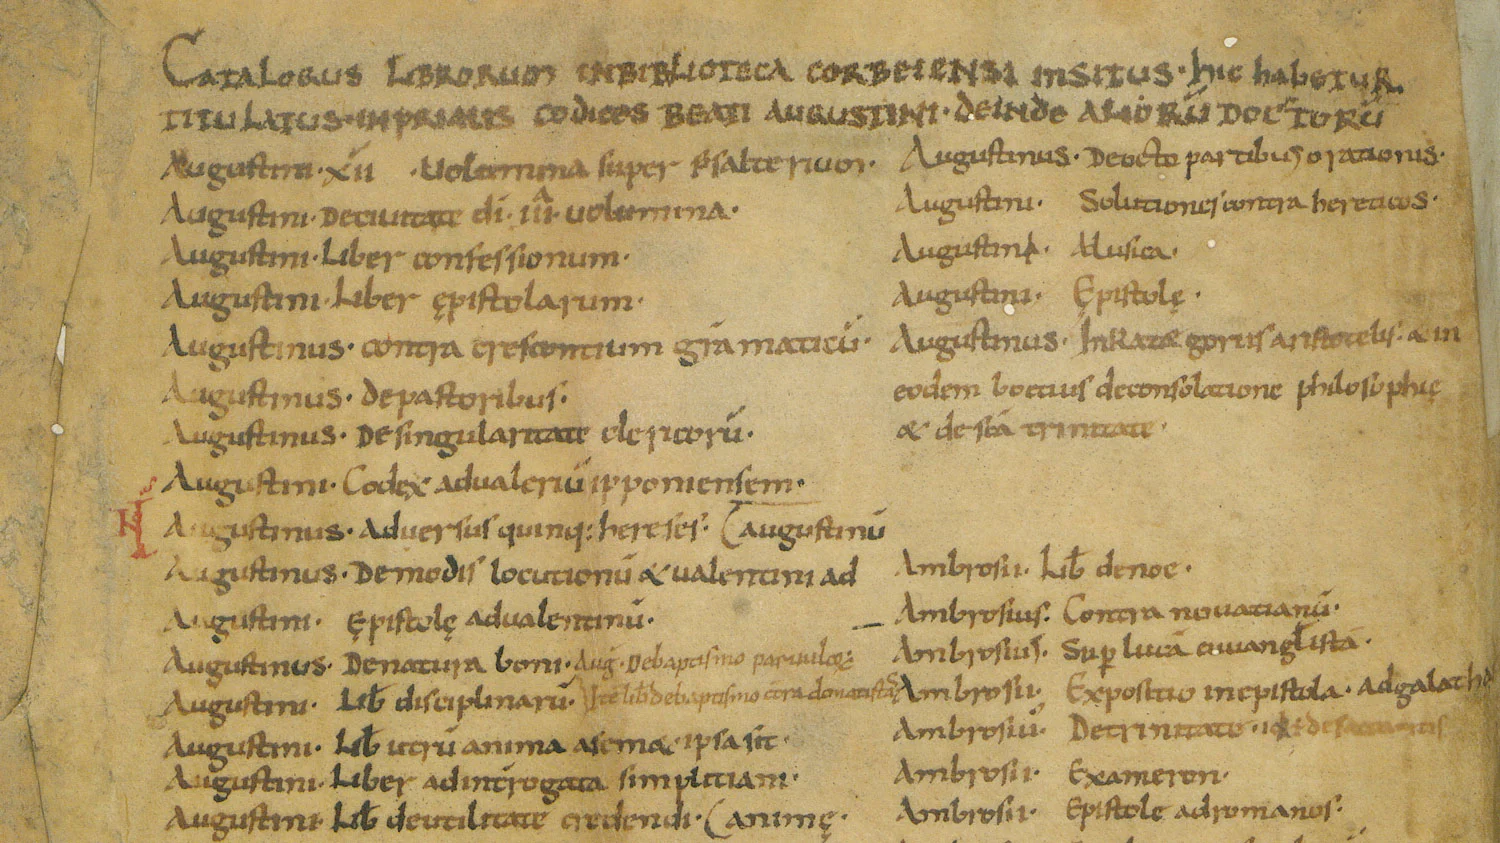 CATALOGUS LIBRORUM INBIBLIOTECA CORBEIENSI INSITUS · hic habetuR
TITULATUS · INPRIMIS CODICES BEATI AUGUSTINI · deinde ALIORŪ DOCTORŪ
Augustini · xii · Uolumina super Psalterium ·
Augustini · Deciuitate dī · iiii · uolumina ·
Augustini · Liber confessionum ·
Augustini · Liber ępistolarum ·
Augustinus · contra cresconium grāmaticū ·
Augustinus · depastoribus ·
Augustinus · Desingularitate clericorū ·
Augustini · Codex adualeriū ipponiensem ·
Augustinus · Aduersus quinq: hereses · (augustinū
Augustinus · Demodis locutionū & ualentini ad
Augustini · Ępistolę adualentinū ·
Augustinus · Denatura boni · Aug̅ · Debaptismo
Augustini · Lib̅ disciplinarū · Itē lib̅ debaptismo cōtra donatistas
Augustini · Lib̅ utrū anima asemæ ipsa sit ·
Augustini · Liber adintrogata simpliciani ·
Augustini · Lib̅ deutilitate credendi · (animę ·
Augustinus · Deocto partibus orationis ·
Augustini · Solutiones contra hereticos ·
Augustini · Musica ·
Augustini · Ępistolę ·
Augustinus · aristotelis · & in
eodem boetius deconsolatione philosophię
& de scā trinitate ·
Ambrosii · Lib̅ denoe ·
Ambrosius · Contra nouatianū ·
Ambrosius · Sup̱ lucā euuanglistā ·
Ambrosii · Expositio inepistola · Adgalath
Ambrosii · Detrinitate ·
Ambrosii · Exameron ·
Ambrosii · Epistole adromanos ·